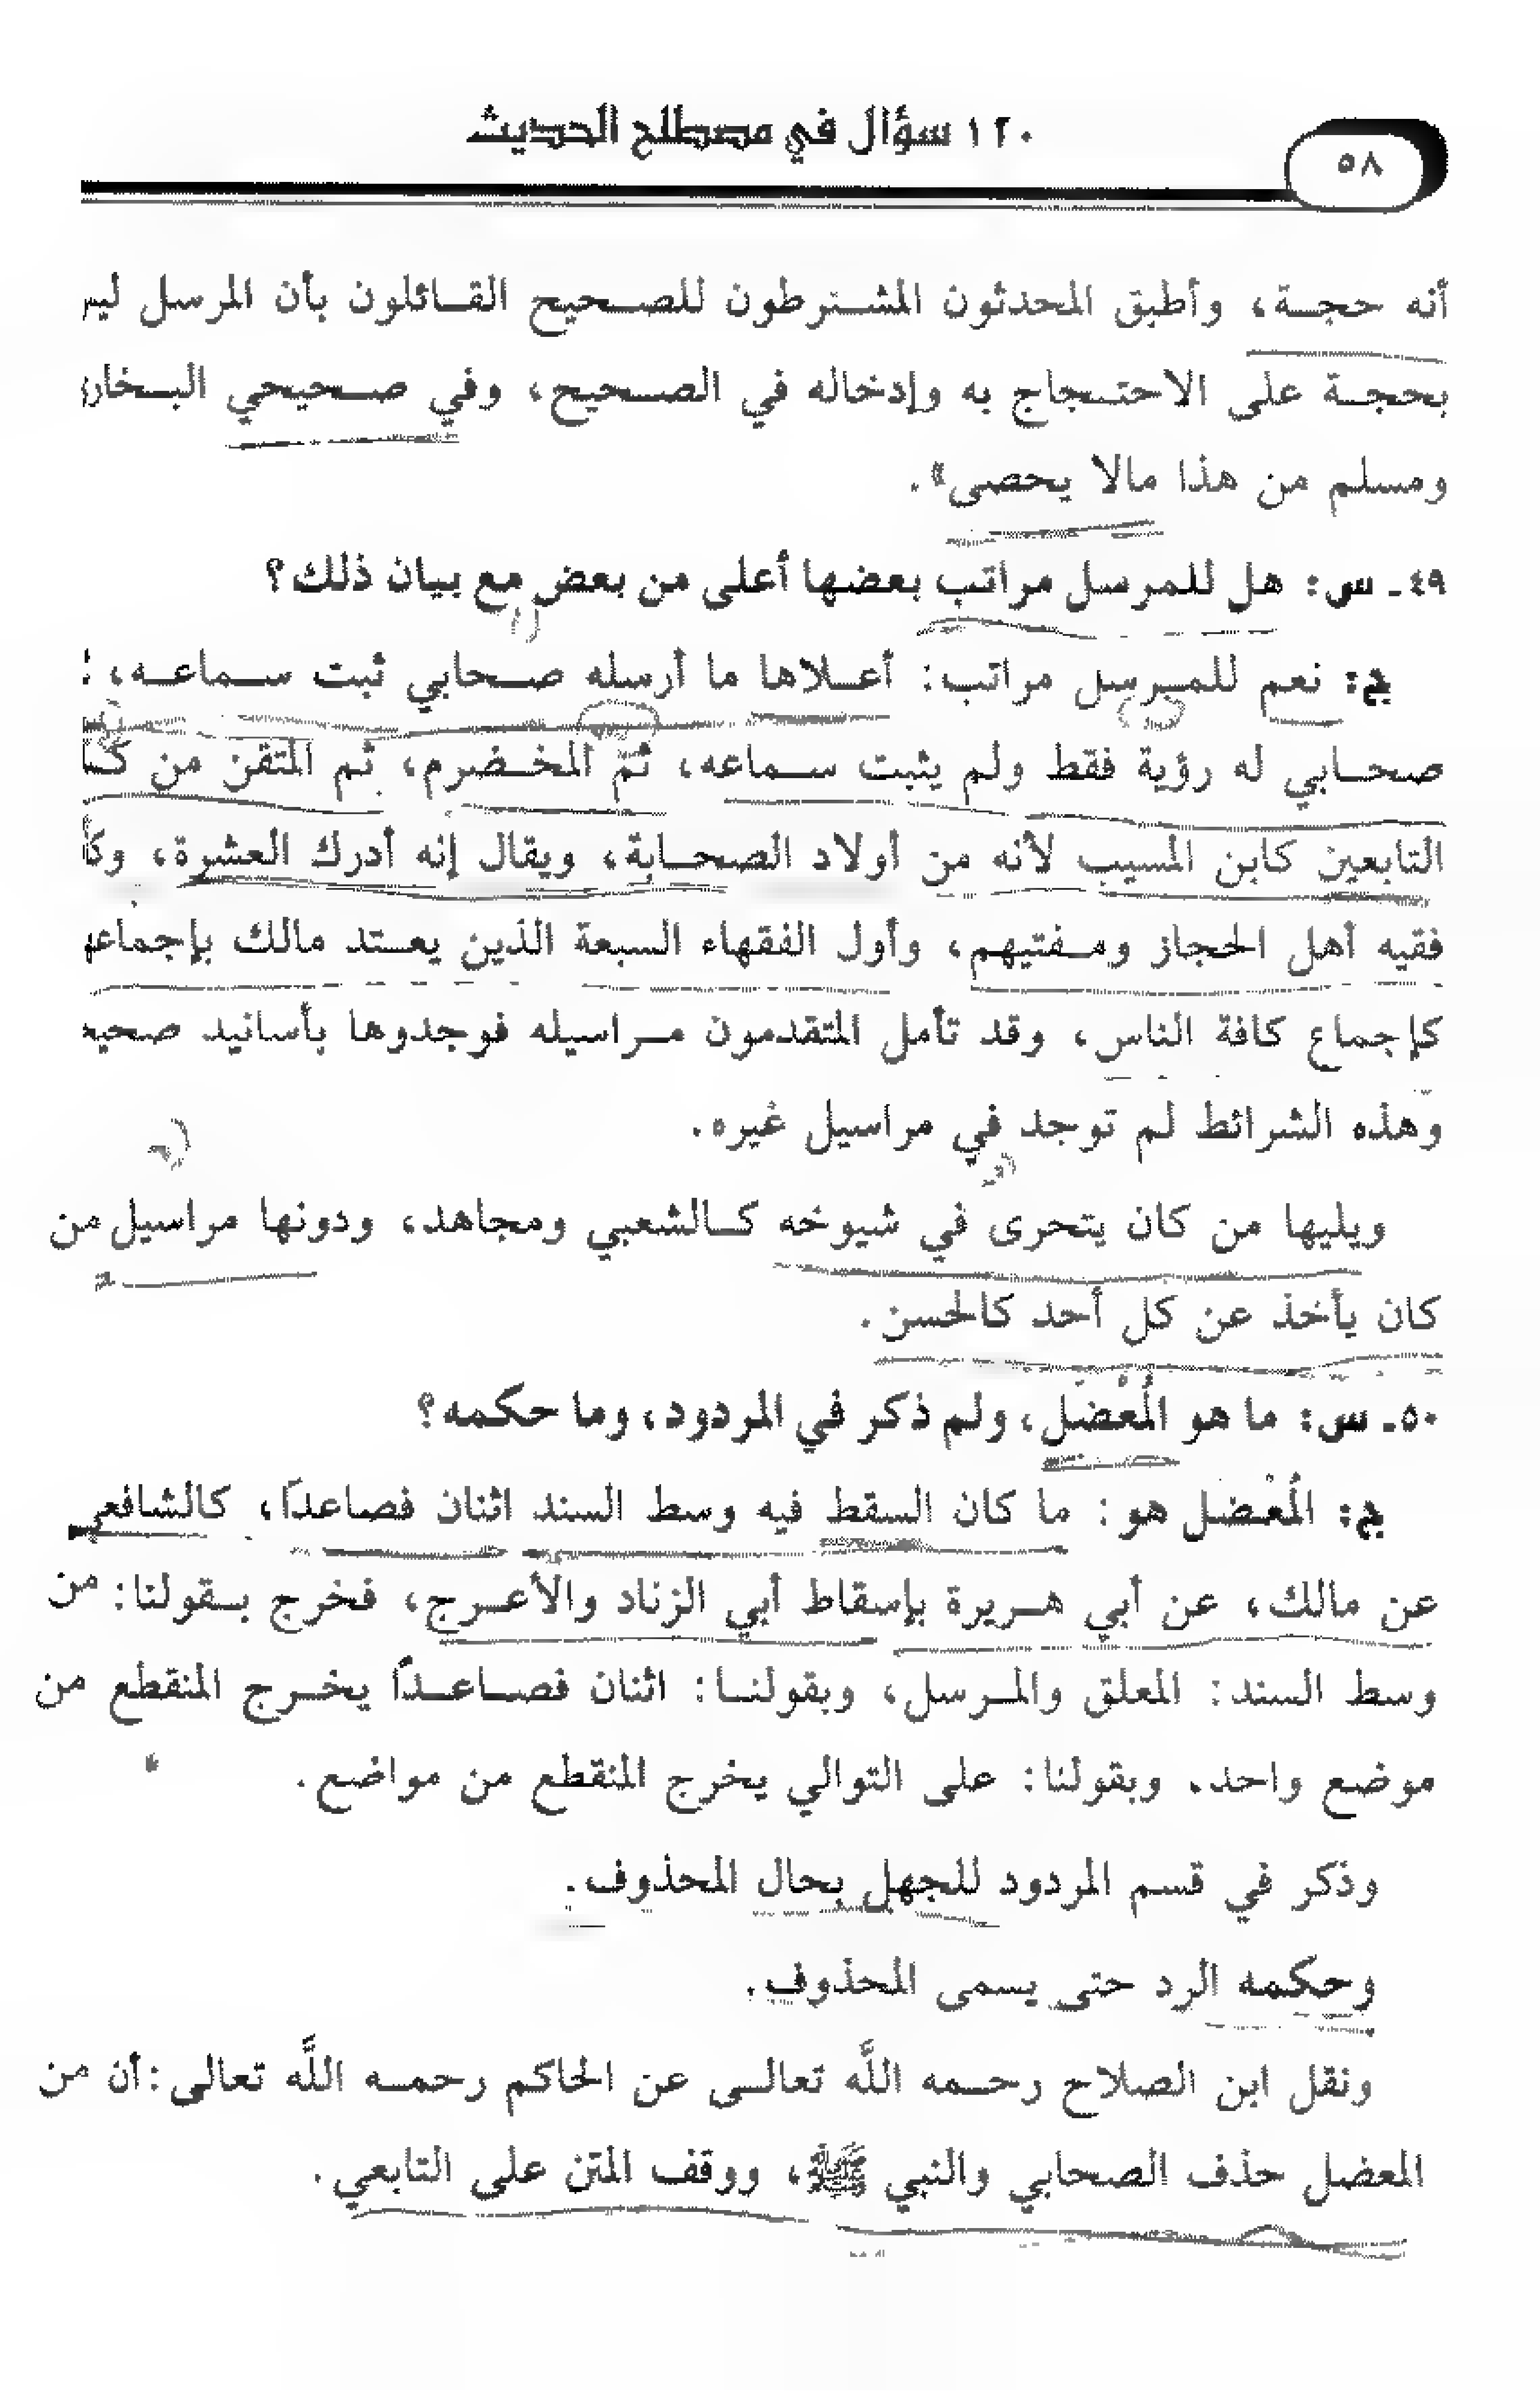 ١٢٠ سؤال في مصطلح الحديث
٥٨
أنه حجة، وأطبق المحدثون المشترطون للصحيح القائلون بأن المرسل ليـ
بحجة على الاحتجاج به وإدخاله في الصحيح، وفي صحيحي البخار
ومسلم من هذا مالا يحصى».
٤٩ـ س: هل للمرسل مراتب بعضها أعلى من بعض مع بيان ذلك؟
ج: نعم للمرسل مراتب: أعلاها ما أرسله صحابي ثبت سماعه،
صحابي له رؤية فقط ولم يثبت سماعه، ثمّ المخضرم، ثم المتقن من
التابعين كابن المسيب لأنه من أولاد الصحابة، ويقال إنه أدرك العشرة، وكا
فقيه أهل الحجاز ومفتيهم، وأول الفقهاء السبعة الذين يعتد مالك بإجماعـ
كإجماع كافة الناس، وقد تأمل المتقدمون مراسيله فوجدوها بأسانيد صحيحـ
وهذه الشرائط لم توجد في مراسيل غيره.
ويليها من كان يتحرى في شيوخه كالشعبي ومجاهد، ودونها مراسيل من
كان يأخذ عن كل أحد كالحسن.
٥٠ـ س: ما هو المُعْضَل، ولم ذكر في المردود، وما حكمه؟
ج: المُعْضل هو: ما كان السقط فيه وسط السند اثنان فصاعدًا، كالشافعي
عن مالك، عن أبي هريرة بإسقاط أبي الزناد والأعرج، فخرج بقولنا: من
وسط السند: المعلق والمرسل، وبقولنا: اثنان فصاعدًا يخرج المنقطع من
موضع واحد. وبقولنا: على التوالي يخرج المنقطع من مواضع.
وذكر في قسم المردود للجهل بحال المحذوف.
وحكمه الرد حتى يسمى المحذوف.
ونقل ابن الصلاح رحمه اللَّه تعالى عن الحاكم رحمه اللَّه تعالى: أن من
المعضل حذف الصحابي والنبي ﷺ، ووقف المتن على التابعي.